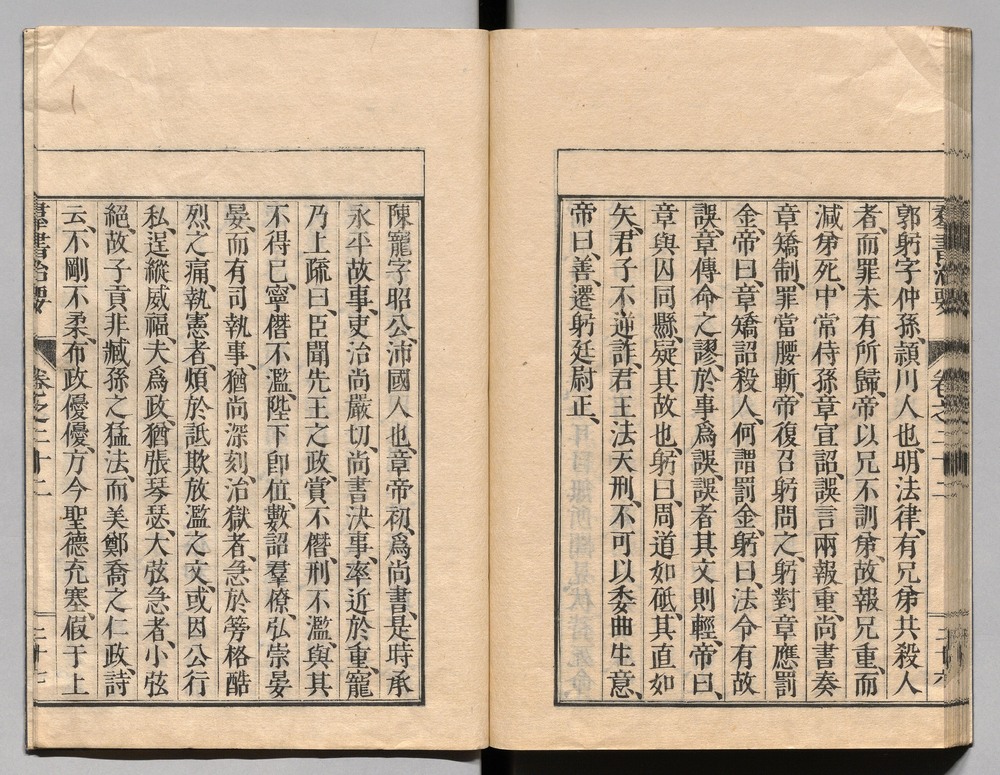 郭躬字仲孫、潁川人也、明法律、有兄弟共殺人
者、而罪未有所歸、帝以兄不訓弟、故報兄重、而
減弟死、中常侍孫章宣詔、誤言兩報重、尚書奏
章矯制、罪當腰斬、帝復召躬問之、躬對章應罰
金、帝曰、章矯詔殺人、何謂罰金、躬曰、法令有故
誤、章傳命之謬、於事爲誤、誤者其文則輕、帝曰、
章與囚同縣、疑其故也、躬曰、周道如砥、其直如
矢、君子不逆詐、君王法天刑、不可以委曲生意、
帝曰、善、遷躬廷尉正、
陳寵字昭公、沛國人也、章帝初、爲尚書、是時承
永平故事、吏治尚嚴切、尚書決事、率近於重、寵
乃上疏曰、臣聞先王之政、賞不僭、刑不濫、與其
不得已、寧僭不濫、陛下卽位、數詔羣僚、弘崇晏
晏、而有司執事、猶尚深刻、治獄者、急於篣格酷
烈之痛、執憲者、煩於詆欺放濫之文、或因公行
私、逞縱威福、夫爲政、猶張琴瑟、大弦急者、小弦
絕、故子貢非臧孫之猛法、而美鄭喬之仁政、詩
云、不剛不柔、布政優優、方今聖德充塞、假于上
羣書治要 卷之二十二